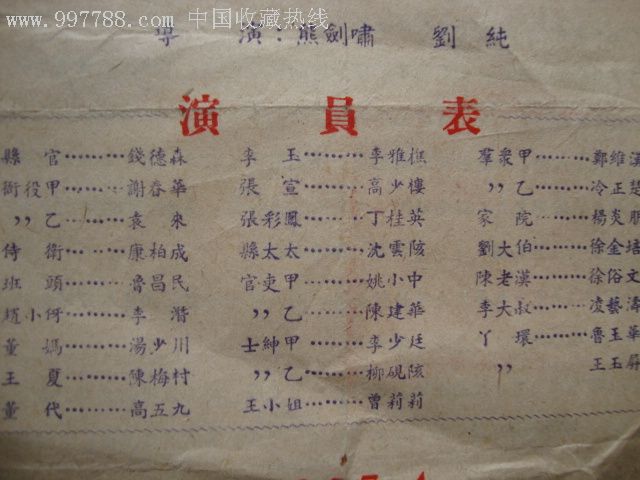 www.997788.com 中国收藏热线
導 演：熊劍嘯 劉純
演員表
縣官………錢德森
衙役甲……謝春華
〃乙………袁來
侍衛………康柏成
班頭………魯昌民
趙小何……李潛
董媽………湯少川
王夏………陳梅村
董代………高五九
李玉………李雅樵
張宣………高少樓
張彩鳳……丁桂英
縣太太……沈雲陔
官吏甲……姚小中
〃乙………陳建華
士紳甲……李少廷
〃乙………柳硯陔
王小姐……曾莉莉
羣衆甲……鄭維漢
〃乙………冷正楚
家院………楊炎朋
劉大伯……徐金培
陳老漢……徐俗文
李大叔……凌藝濤
丫環………魯玉華
〃…………王玉屏